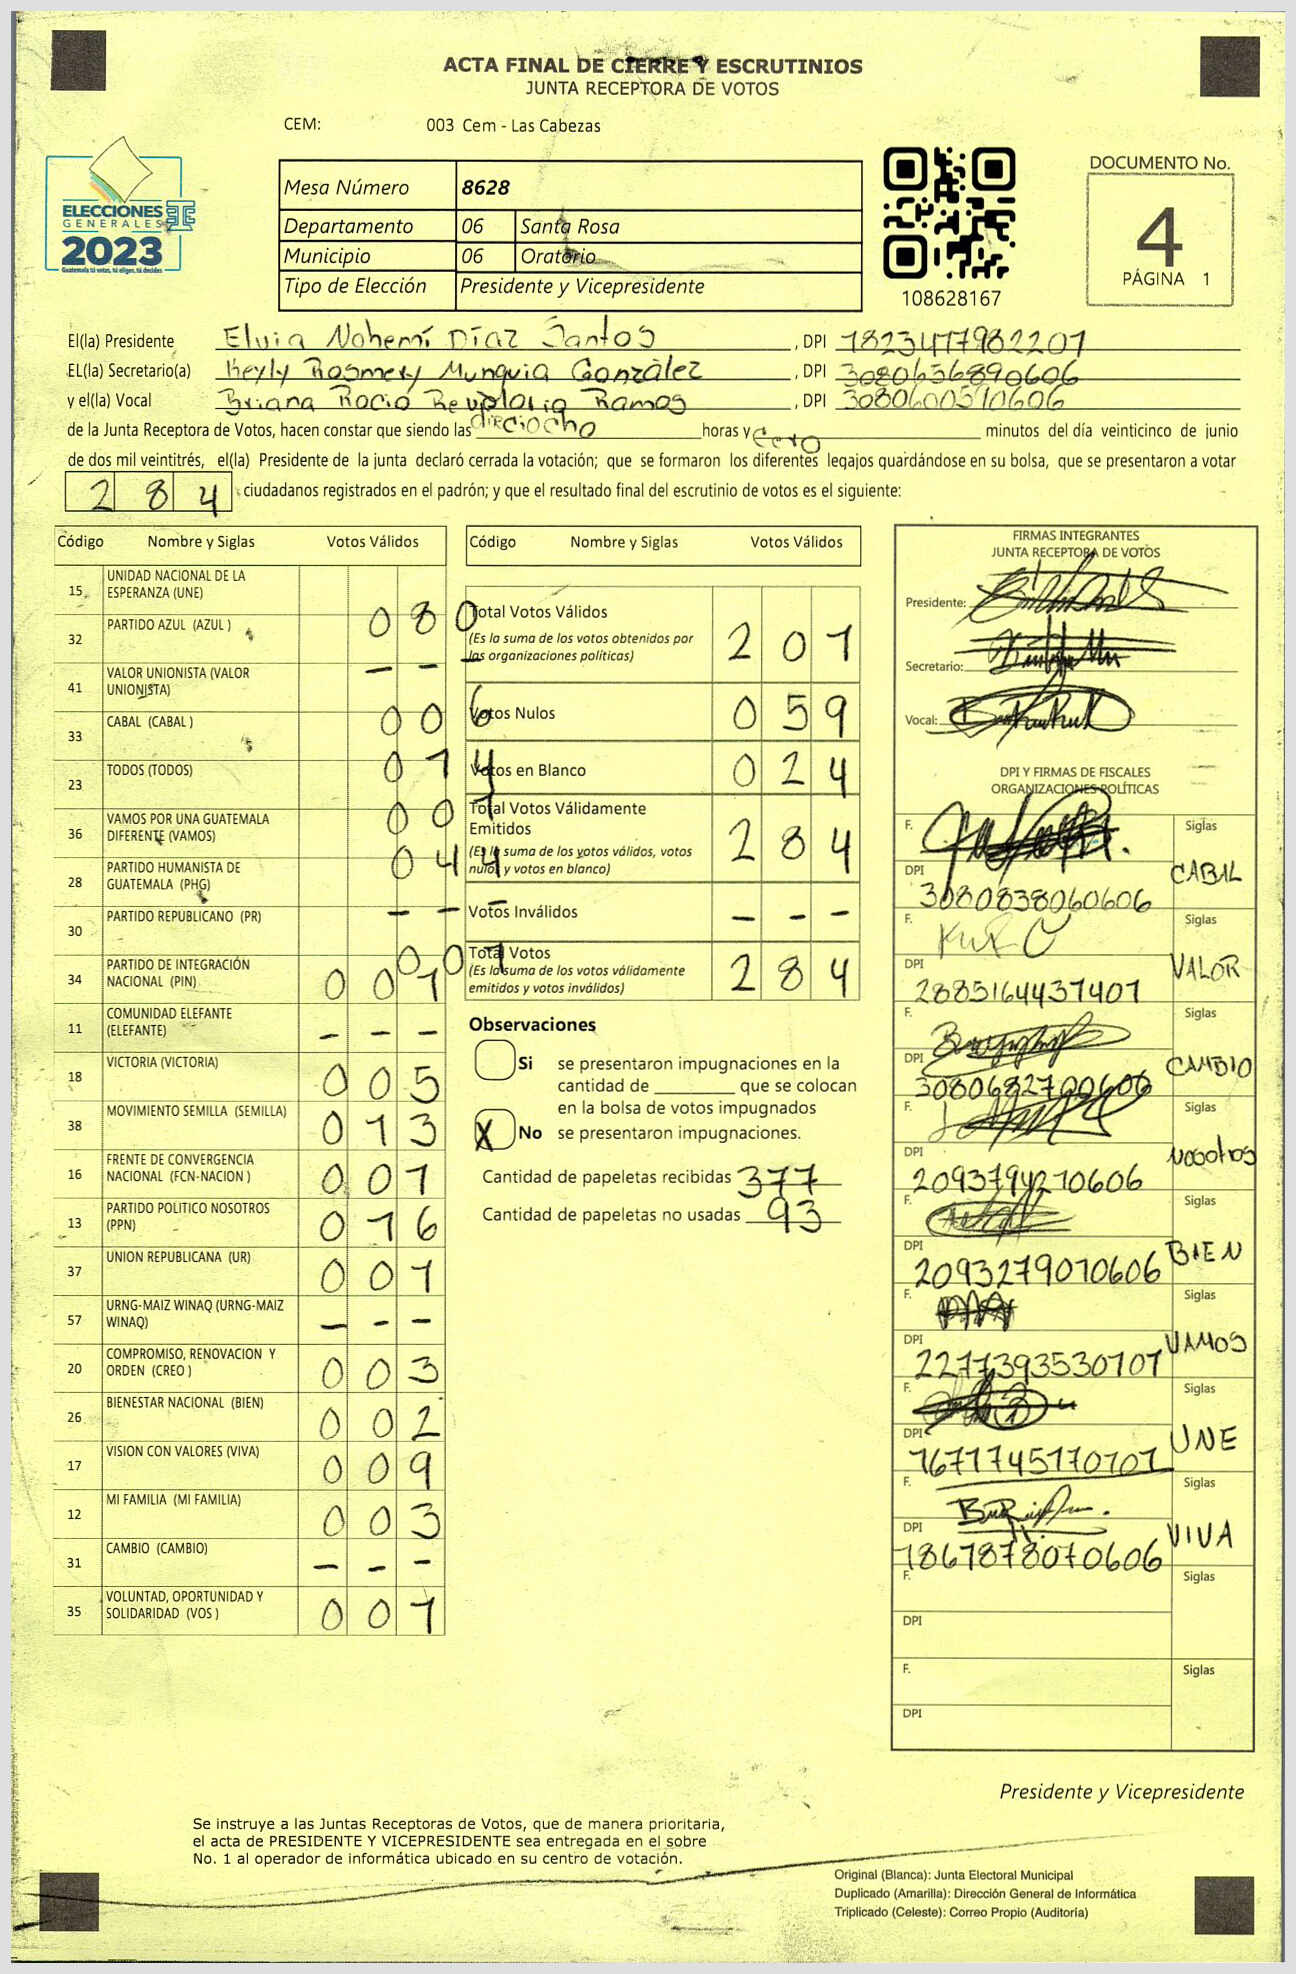 ACTA FINAL DE CIERRE Y ESCRUTINIOS
JUNTA RECEPTORA DE VOTOS
CEM: 003 Cem - Las Cabezas
ELECCIONES
GENERALES
2023
Guatemala tú votas, tú eliges, tú decides
Mesa Número 8628
Departamento 06 Santa Rosa
Municipio 06 Oratorio
Tipo de Elección Presidente y Vicepresidente
108628167
DOCUMENTO No.
4
PÁGINA 1
El(la) Presidente Elvia Nohemí Díaz Santos, DPI 1823477982201
EL(la) Secretario(a) Keyly Rosmery Munguia González, DPI 3080636890606
y el(la) Vocal Briana Rocío Ramos, DPI 3080600510606
de la Junta Receptora de Votos, hacen constar que siendo las dieciocho horas y cero minutos del día veinticinco de junio
de dos mil veintitrés, el(la) Presidente de la junta declaró cerrada la votación; que se formaron los diferentes legajos guardándose en su bolsa, que se presentaron a votar
284 ciudadanos registrados en el padrón; y que el resultado final del escrutinio de votos es el siguiente:
Código Nombre y Siglas Votos Válidos
15 UNIDAD NACIONAL DE LA
ESPERANZA (UNE)
080
32 PARTIDO AZUL (AZUL )
- - -
41 VALOR UNIONISTA (VALOR
UNIONISTA)
006
33 CABAL (CABAL )
014
23 TODOS (TODOS)
001
36 VAMOS POR UNA GUATEMALA
DIFERENTE (VAMOS)
044
28 PARTIDO HUMANISTA DE
GUATEMALA (PHG)
- - -
30 PARTIDO REPUBLICANO (PR)
001
34 PARTIDO DE INTEGRACIÓN
NACIONAL (PIN)
001
11 COMUNIDAD ELEFANTE
(ELEFANTE)
- - -
18 VICTORIA (VICTORIA)
005
38 MOVIMIENTO SEMILLA (SEMILLA)
013
16 FRENTE DE CONVERGENCIA
NACIONAL (FCN-NACION )
001
13 PARTIDO POLITICO NOSOTROS
(PPN)
016
37 UNION REPUBLICANA (UR)
001
57 URNG-MAIZ WINAQ (URNG-MAIZ
WINAQ)
- - -
20 COMPROMISO, RENOVACION Y
ORDEN (CREO )
003
26 BIENESTAR NACIONAL (BIEN)
002
17 VISION CON VALORES (VIVA)
009
12 MI FAMILIA (MI FAMILIA)
003
31 CAMBIO (CAMBIO)
- - -
35 VOLUNTAD, OPORTUNIDAD Y
SOLIDARIDAD (VOS )
001
Código Nombre y Siglas Votos Válidos
Total Votos Válidos
(Es la suma de los votos obtenidos por
las organizaciones políticas)
201
Votos Nulos 059
Votos en Blanco 024
Total Votos Válidamente
Emitidos
(Es la suma de los votos válidos, votos
nulos y votos en blanco)
284
Votos Inválidos - - -
Total Votos
(Es la suma de los votos válidamente
emitidos y votos inválidos)
284
Observaciones
Si se presentaron impugnaciones en la
cantidad de ________ que se colocan
en la bolsa de votos impugnados
X No se presentaron impugnaciones.
Cantidad de papeletas recibidas 377
Cantidad de papeletas no usadas 93
FIRMAS INTEGRANTES
JUNTA RECEPTORA DE VOTOS
Presidente:
Secretario:
Vocal:
DPI Y FIRMAS DE FISCALES
ORGANIZACIONES POLÍTICAS
F. Siglas
DPI 3080838060606 CABAL
F. Siglas
DPI 2885164437401 VALOR
F. Siglas
DPI 3080682700606 CAMBIO
F. Siglas
DPI 2093794210606 Nosotros
F. Siglas
DPI 2093279010606 BIEN
F. Siglas
DPI 2277393530101 VAMOS
F. Siglas
DPI 1671745170101 UNE
F. Siglas
DPI 1867878070606 VIVA
F. Siglas
DPI
F. Siglas
DPI
Presidente y Vicepresidente
Se instruye a las Juntas Receptoras de Votos, que de manera prioritaria,
el acta de PRESIDENTE Y VICEPRESIDENTE sea entregada en el sobre
No. 1 al operador de informática ubicado en su centro de votación.
Original (Blanca): Junta Electoral Municipal
Duplicado (Amarilla): Dirección General de Informática
Triplicado (Celeste): Correo Propio (Auditoría)